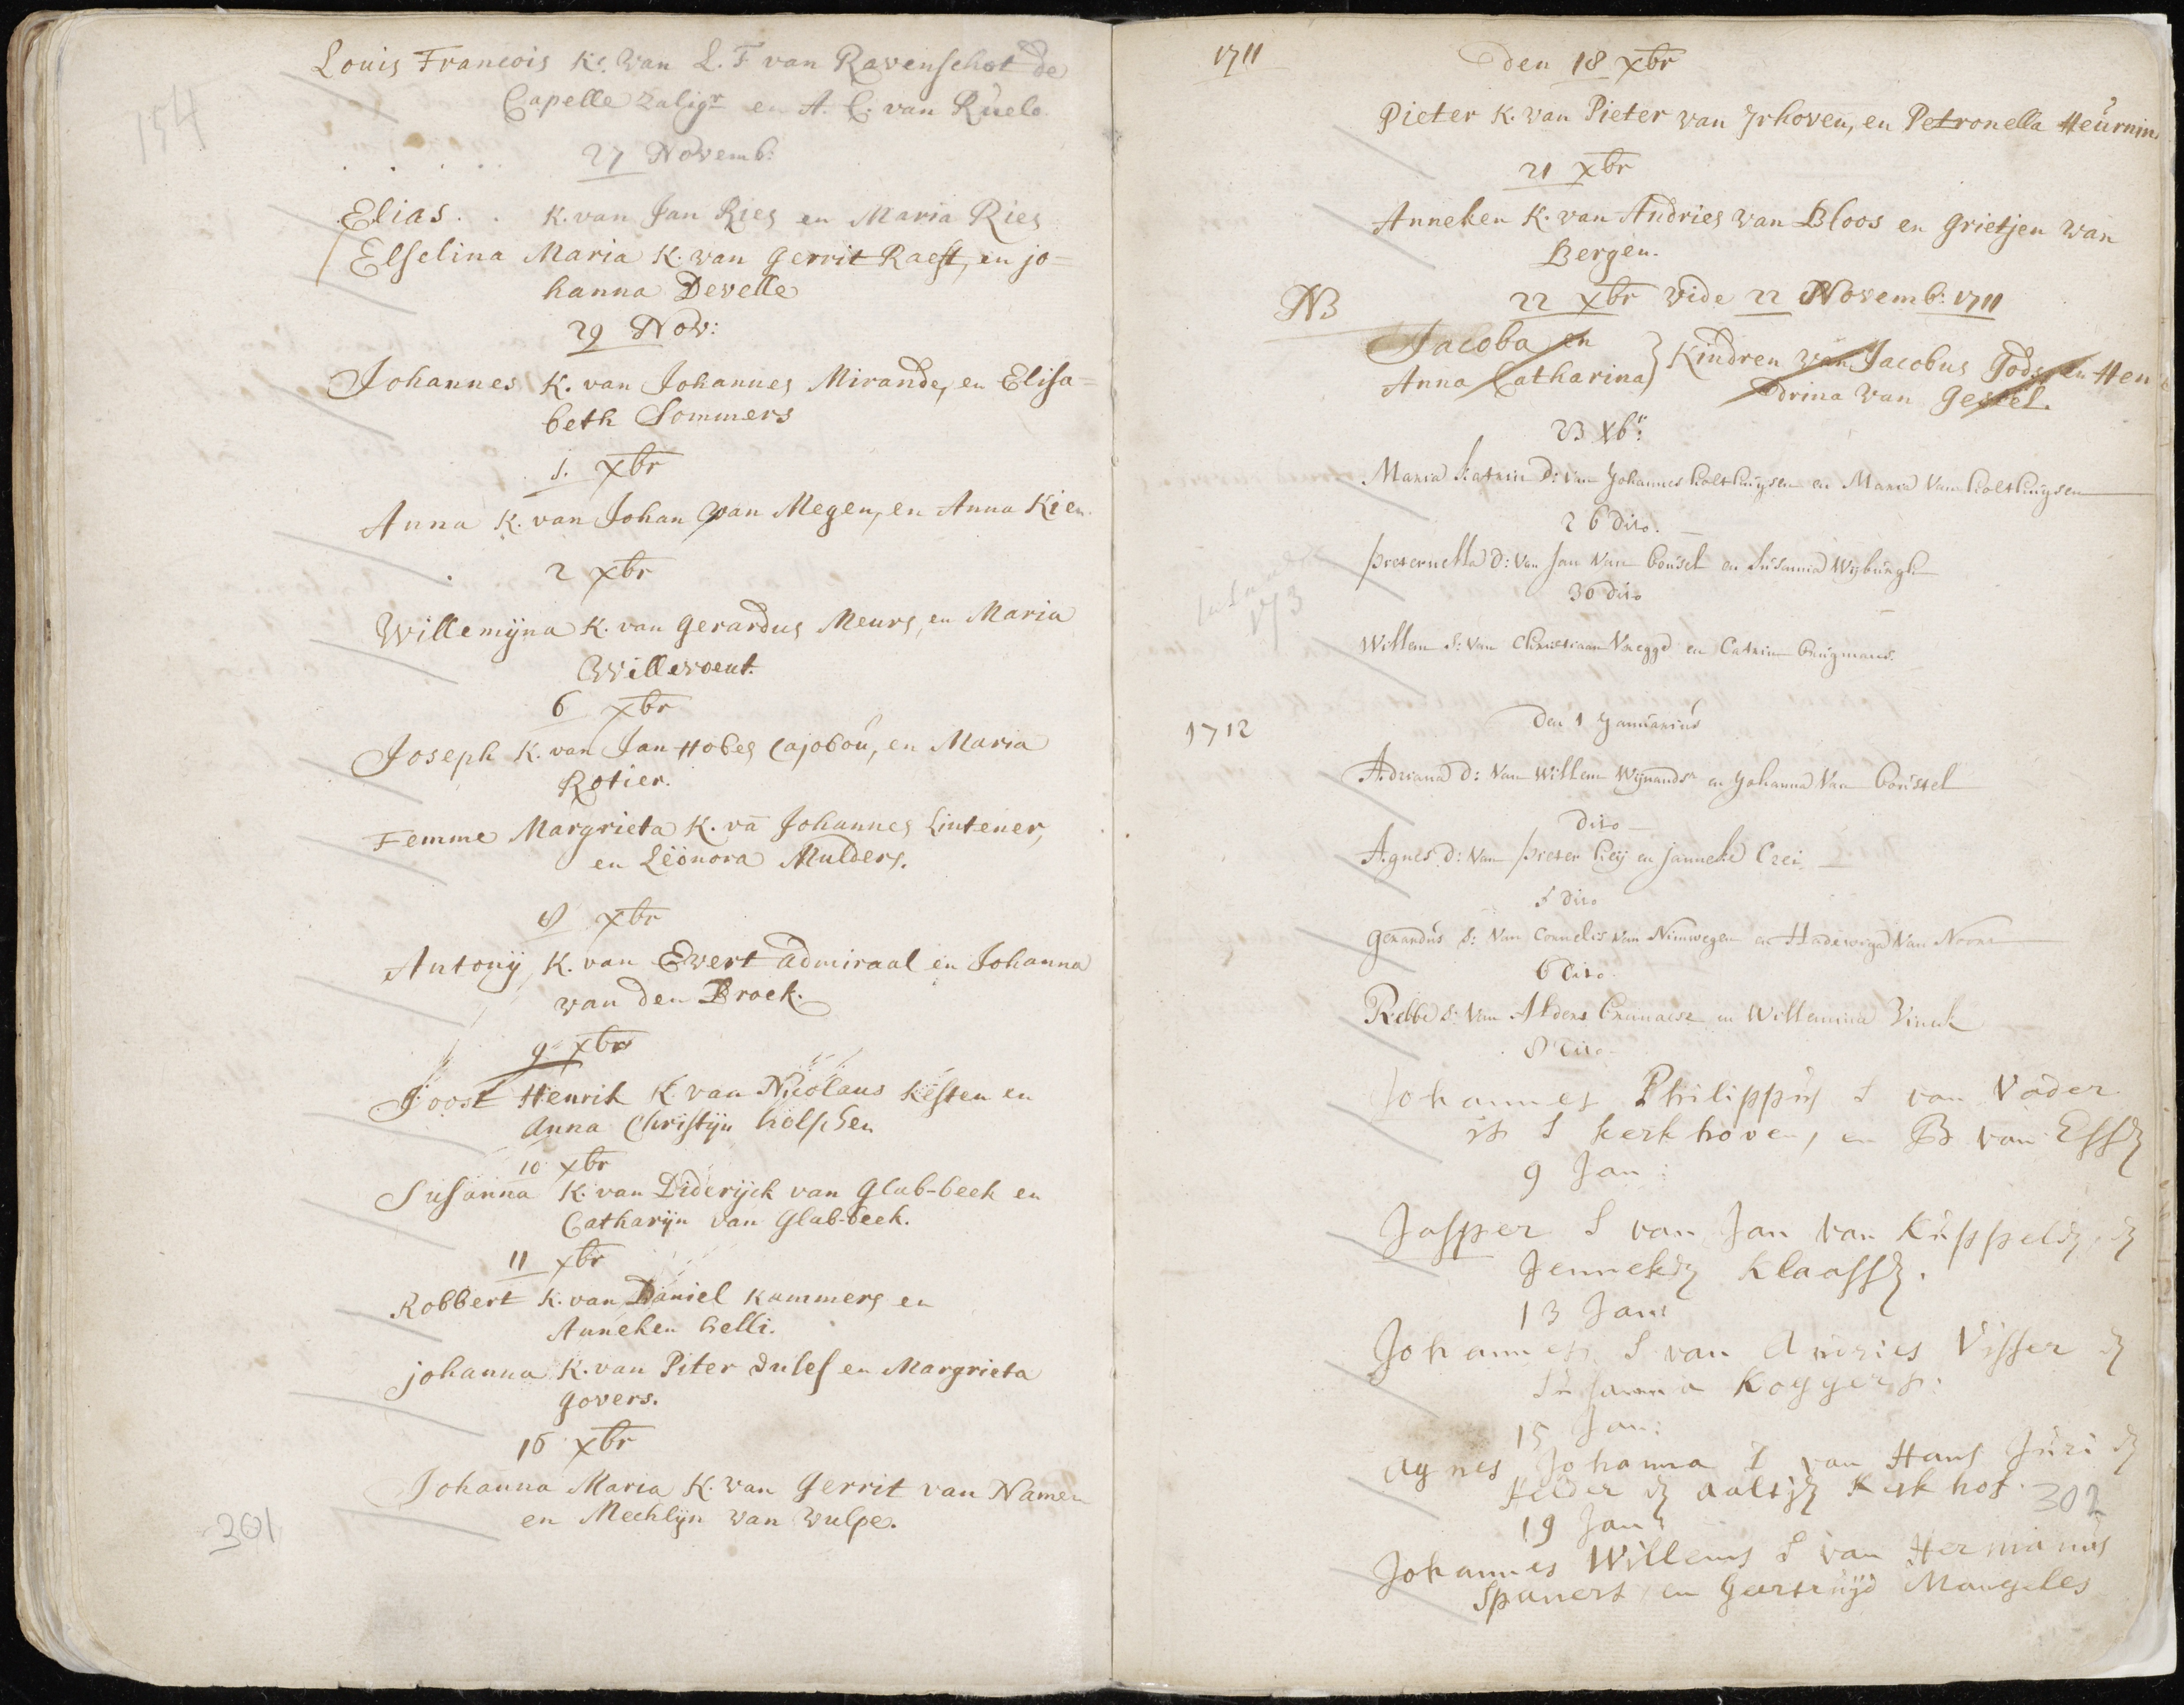 154
Louis Francois Ks. van L. F van Ravenschot de
Capelle zaligr en A. C. van Ruelo
27 Novemb:
Elias . . K. van Jan Ries en Maria Ries
Elselina Maria K. van Gerrit Raest, en jo=
hanna Develle
29 Nov:
Johannes K. van Johannes Mirande, en Elisa=
beth Sommers
1. xbr
Anna K. van Johan van Megen, en Anna Kien
2 xbr
Willemijna K. van Gerardus Meurs, en Maria
Willevoeut.
6 xbr
Joseph K. van Jan Hobes Cajoboú, en Maria
Rotier.
Femme Margrieta K. vā Johannes Lintener,
en Leönora Mulders.
8 xbr
Antonij K. van Evert admiraal en Johanna
van den Broek.
9 xbr
Joost Henrik K. van Nicolaus Kesten en
Anna Christijn hölschen
10 xbr
Susanna K. van Diderijck van Glab-beek en
Catharijn van Glab-beek.
11 xbr
Robbert K. van Daniel Kammers en
Anneken helli.
johanna K. van Piter Dulef en Margrieta
Govers.
16 xbr
Johanna Maria K. van Gerrit van Namen
en Mechlijn van Wulpe.
301
1711
Den 18 xbr
Pieter K. van Pieter van Irhoven, en Petronella Heúrnin
21 xbr
Anneken K. van Andries van Bloos en Grietjen van
Bergen.
NB
22 xbr vide 22 Novemb: 1711
Jacoba en
Anna Catharina } Kindren van Jacobus Gods, en Hen
drina van Gestel.
23 Xbr:
Maria Katrin D: van Johannes holthuijsen en Maria van holthuijsen
26 dito.
pieternella D: van Jan van boúsel en Súsanna Wijbúrgh
30 dito
Willem S: van Christiaan Vregge en Catrin brúgmans.
1712
Den 1 Januarius
Adriana D: van Willem Wijnands en Johanna van boústel
dito
Agnes D: van pieter heij en janneke Crei
5 dito
Gerardus S: van Cornelis van Nimwegen en Hadewiga van Noorn
6 dito
Rebbe S: van Alders en Willemina Vinck
8 dito
Johannes Philippus S van Vader
is S Kerkhoven, en B van Essen
9 Jan:
Jasper S van Jan van Kuppelen, en
Jenneken Klaassen.
13 Jan:
Johannes S van Andries Visser en
Susanna Koggers:
15 Jan:
Agnes Johanna D van Hans Júri en
Aaltjen Kerkhof.
302
19 Jan:
Johannes Willems S van Hermanus
Spaners en Geertruijd Mangeles